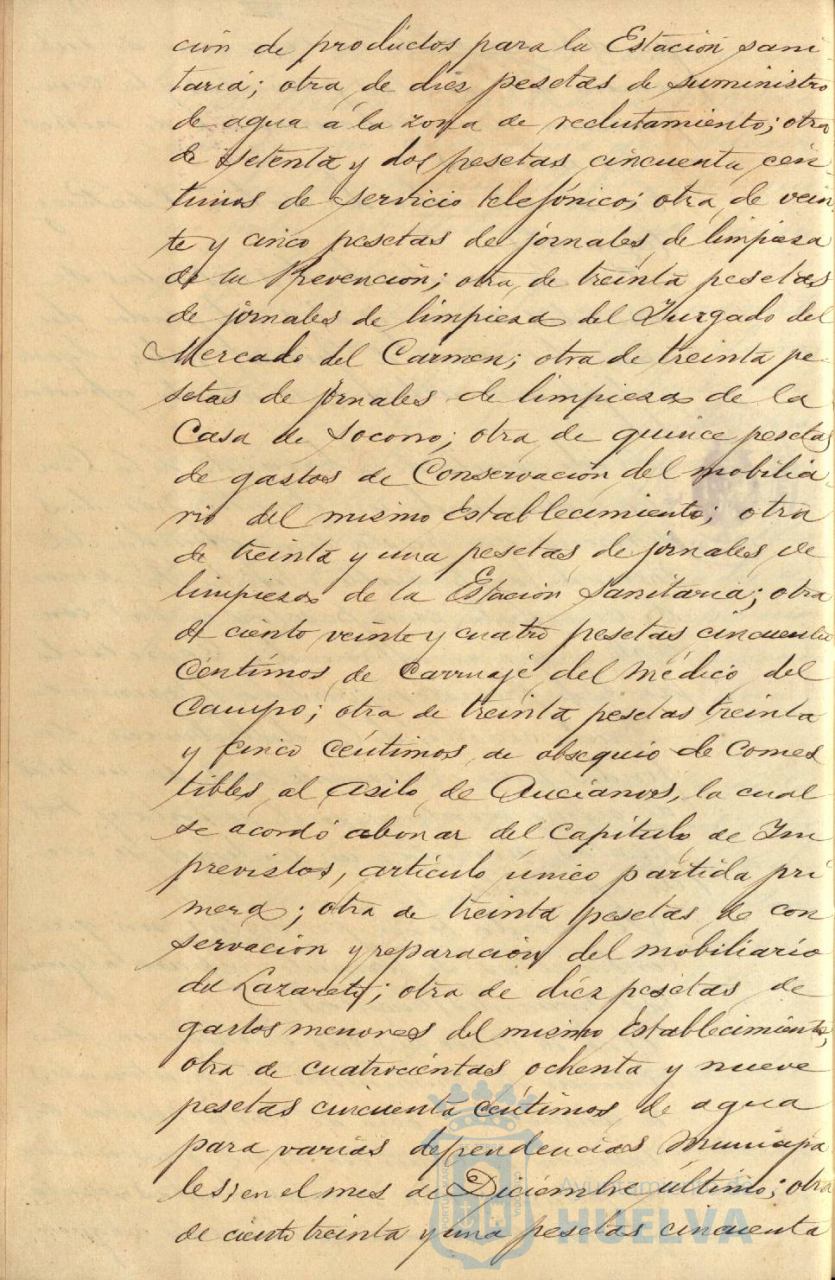 ción de productos para la Estación sani
taria; otra de diez pesetas de suministro
de agua á la zona de reclutamiento; otra
de setenta y dos pesetas cincuenta cén-
timos de servicio telefónico; otra de vein
te y cinco pesetas de jornales de limpieza
de la Prevención; otra de treinta pesetas
de jornales de limpieza del Juzgado del
Mercado del Carmen; otra de treinta pe-
setas de jornales de limpieza de la
Casa de Socorro; otra de quince pesetas
de gastos de Conservación del mobilia-
rio del mismo Establecimiento; otra
de treinta y una pesetas de jornales de
limpieza de la Estación Sanitaria; otra
de ciento veinte y cuatro pesetas cincuenta
céntimos de carruaje del Médico del
Campo; otra de treinta pesetas treinta
y cinco céntimos de obsequio de comes
tibles al Asilo de Ancianos, la cual
se acordó abonar del Capítulo de Im
previstos, artículo único partida pri
mera; otra de treinta pesetas de con
servación y reparación del mobiliario
del Lazareto; otra de diez pesetas de
gastos menores del mismo Establecimiento;
otra de cuatrocientas ochenta y nueve
pesetas cincuenta céntimos de agua
para varias dependencias Municipa
les, en el mes de Diciembre último; otra
de ciento treinta y una pesetas cincuenta
Ayuntamiento de
HUELVA